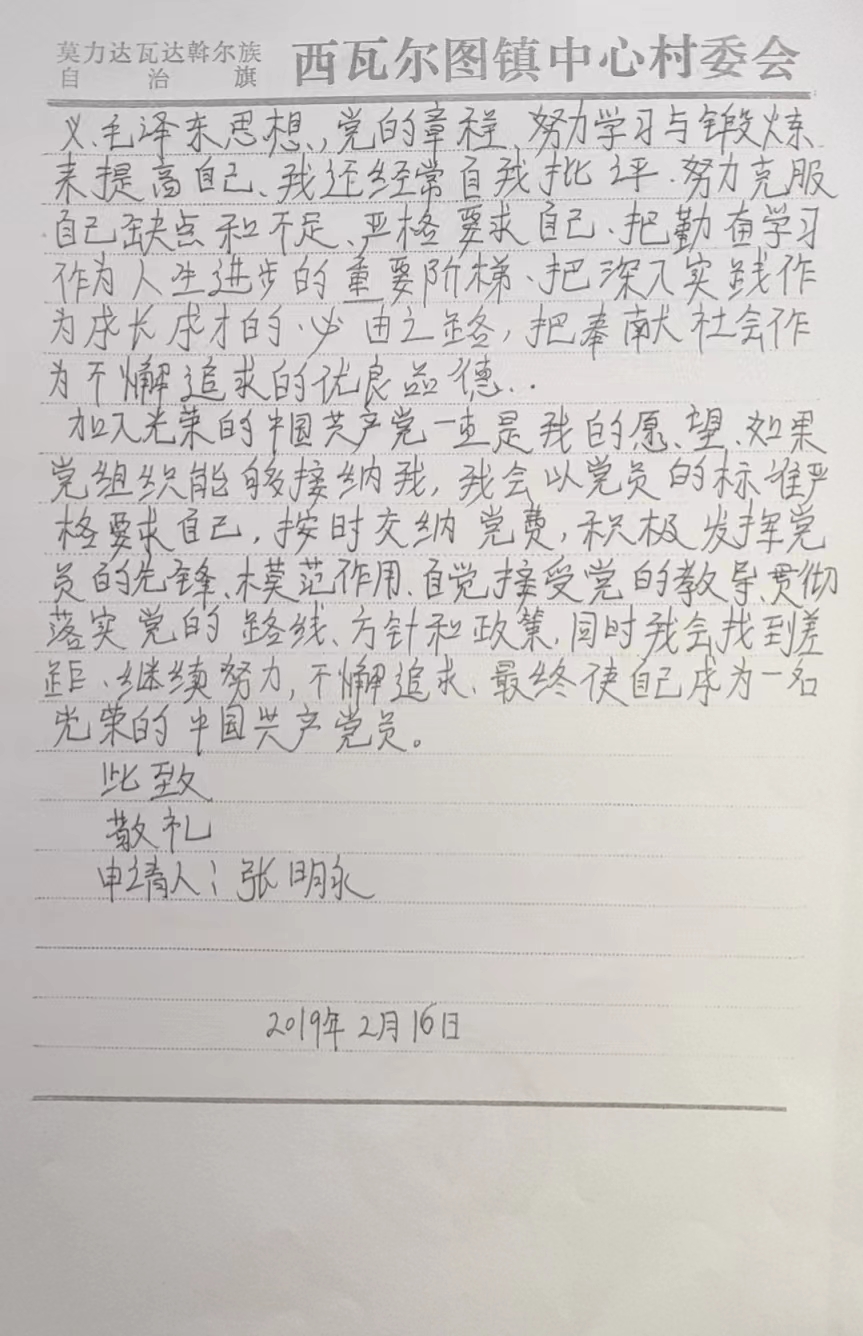 莫力达瓦达斡尔族
自治旗
西瓦尔图镇中心村委会
义、毛泽东思想,党的章程、努力学习与锻炼
来提高自己、我还经常自我批评.努力克服
自己缺点和不足、严格要求自己、把勤奋学习
作为人生进步的重要阶梯、把深入实践作
为成长成才的必由之路,把奉献社会作
为不懈追求的优良品德..
加入光荣的中国共产党一直是我的愿望、如果
党组织能够接纳我,我会以党员的标准严
格要求自己,按时交纳党费,积极发挥党
员的先锋、模范作用、自觉接受党的教导、贯彻
落实党的路线、方针和政策,同时我会找到差
距、继续努力,不懈追求、最终使自己成为一名
光荣的中国共产党员。
此致
敬礼
申请人:张明永
2019年2月16日